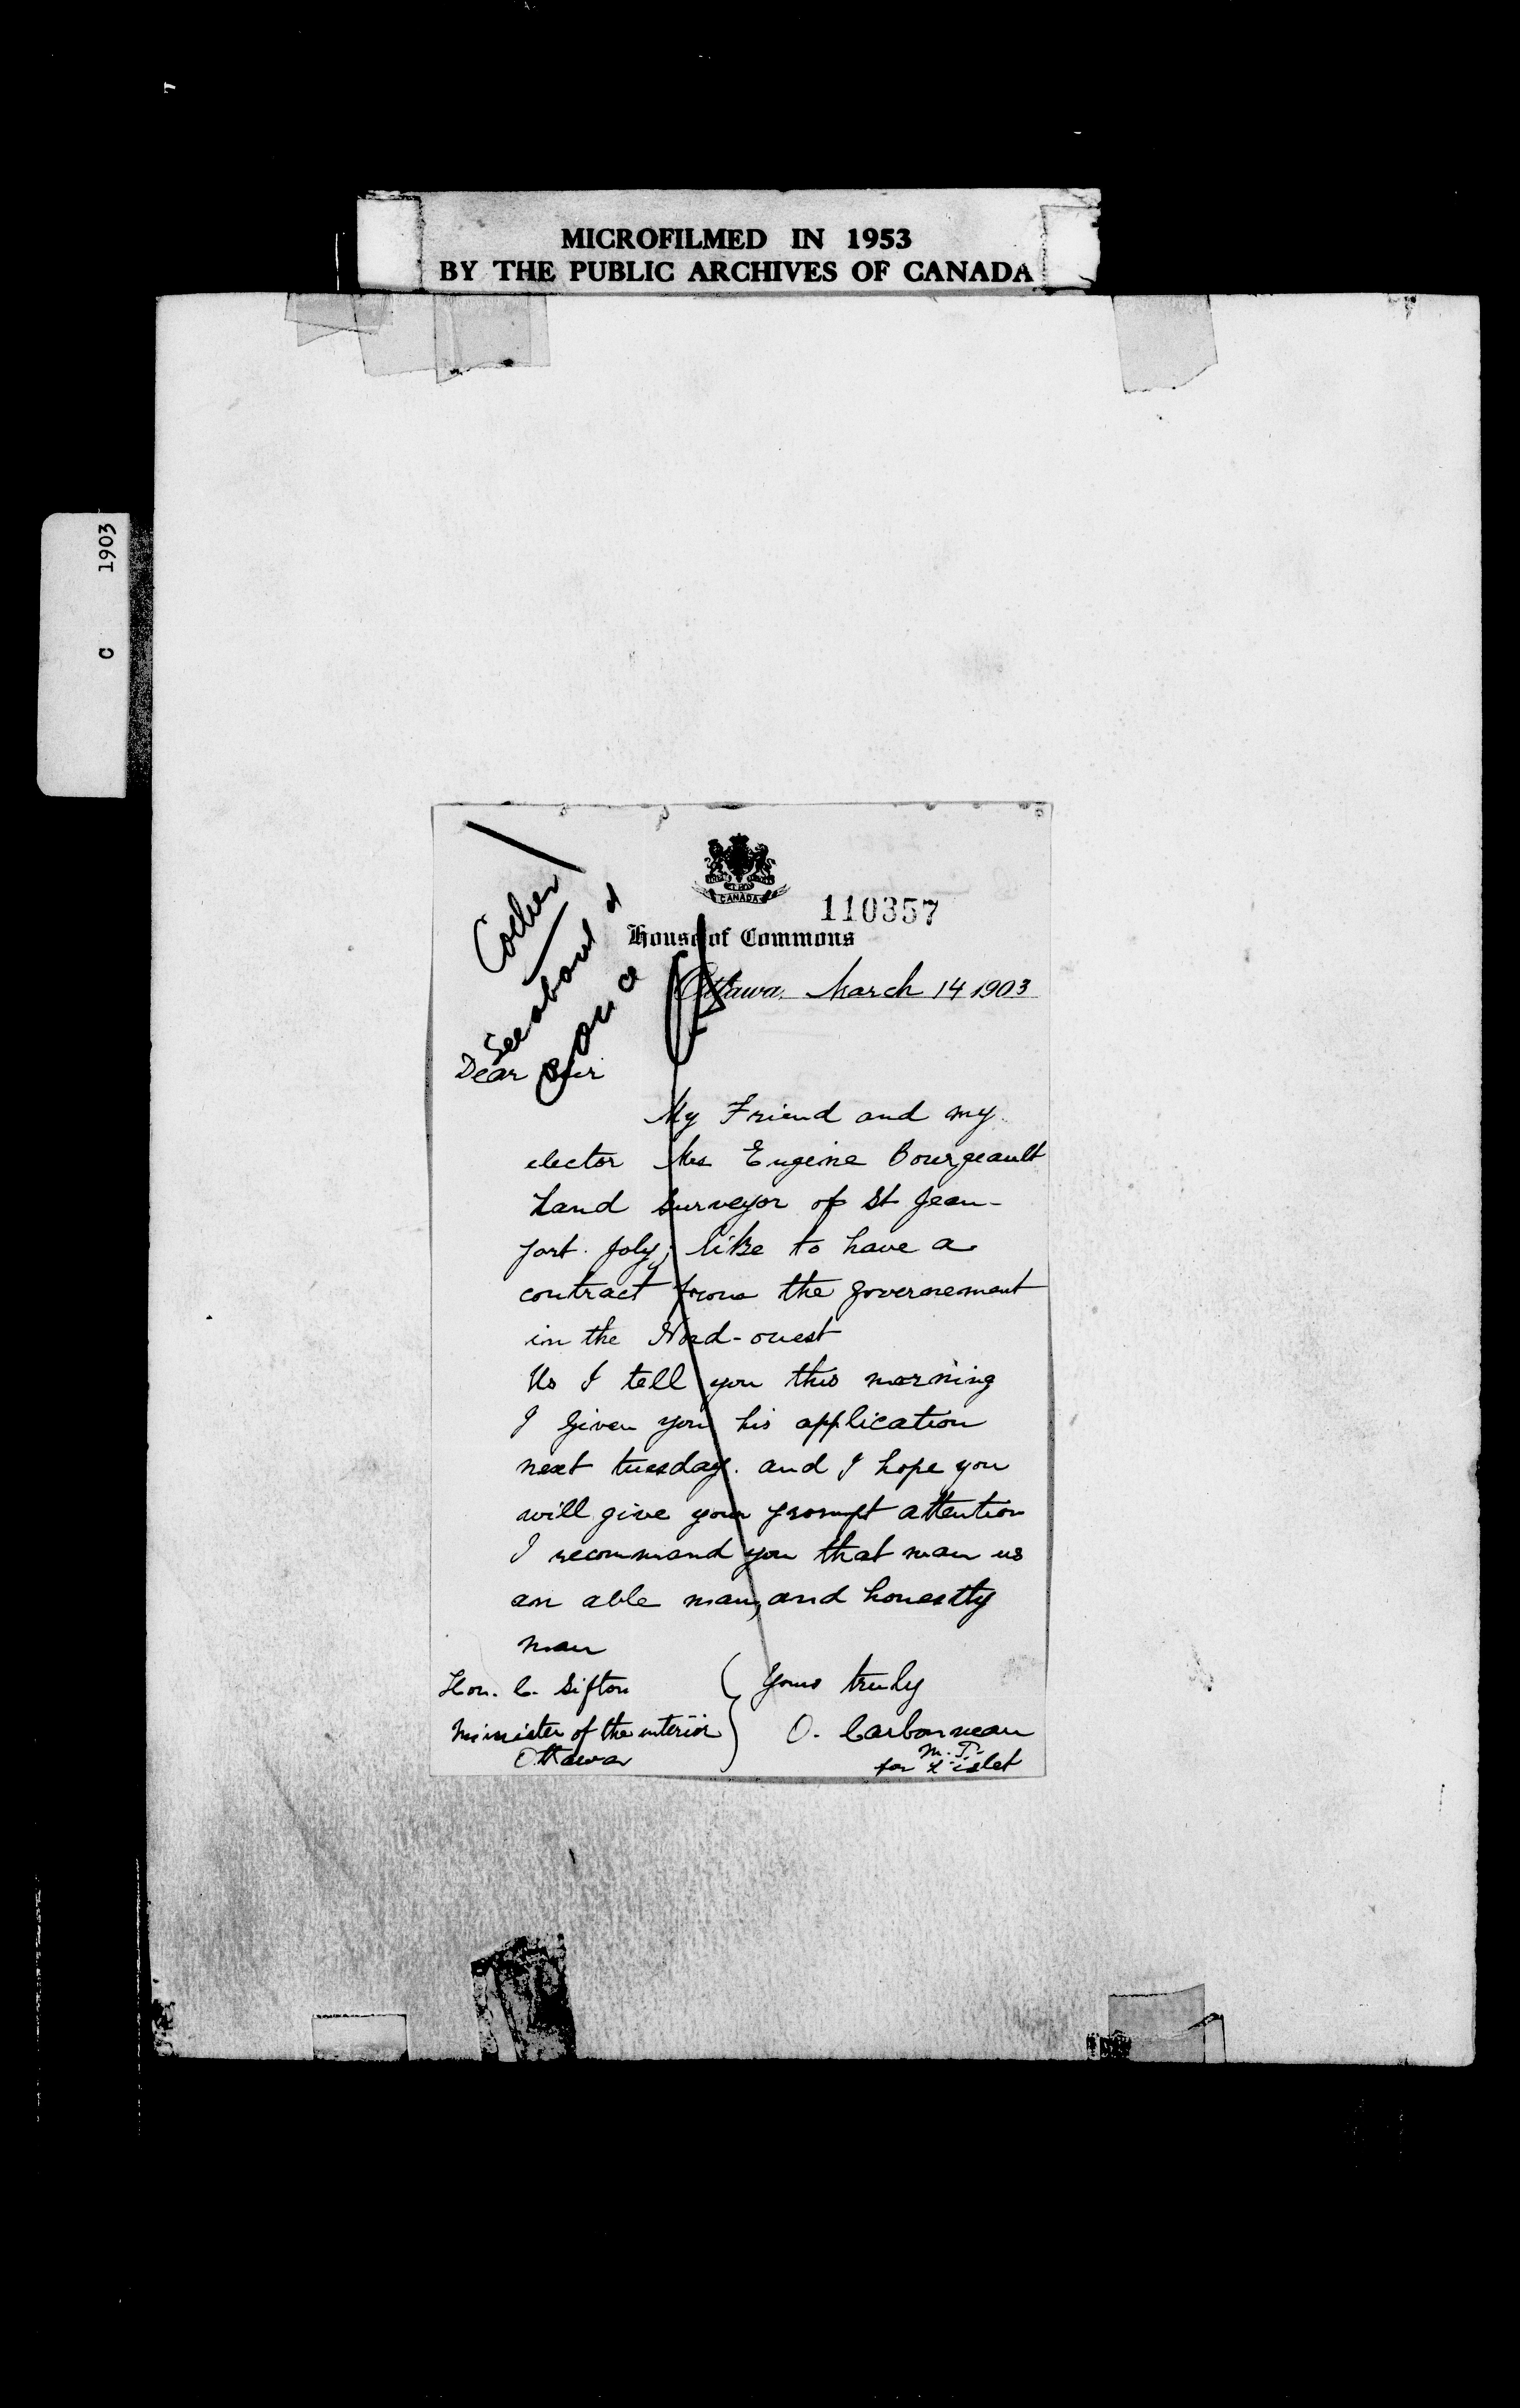 MICROFILMED IN 1953
BY THE PUBLIC ARCHIVES OF CANADA
C 1903
CANADA
110357
House of Commons
Ottawa, March 14 1903
See about
Dear Sir
My Friend and my
elector Mr Eugene Bourgeault
Land Surveyor of St Jean-
port. Joly; like to have a
contract from the governement
in the Nord-ouest
As I tell you this morning
I given you his application
next tuesday. and I hope you
will give your prompt attention
I recommand you that man as
an able man, and honestly
man
Hon. C. Sifton
Minister of the interior
Ottawa
Yours truly
O. Carbonneau
M.P.
for L'islet